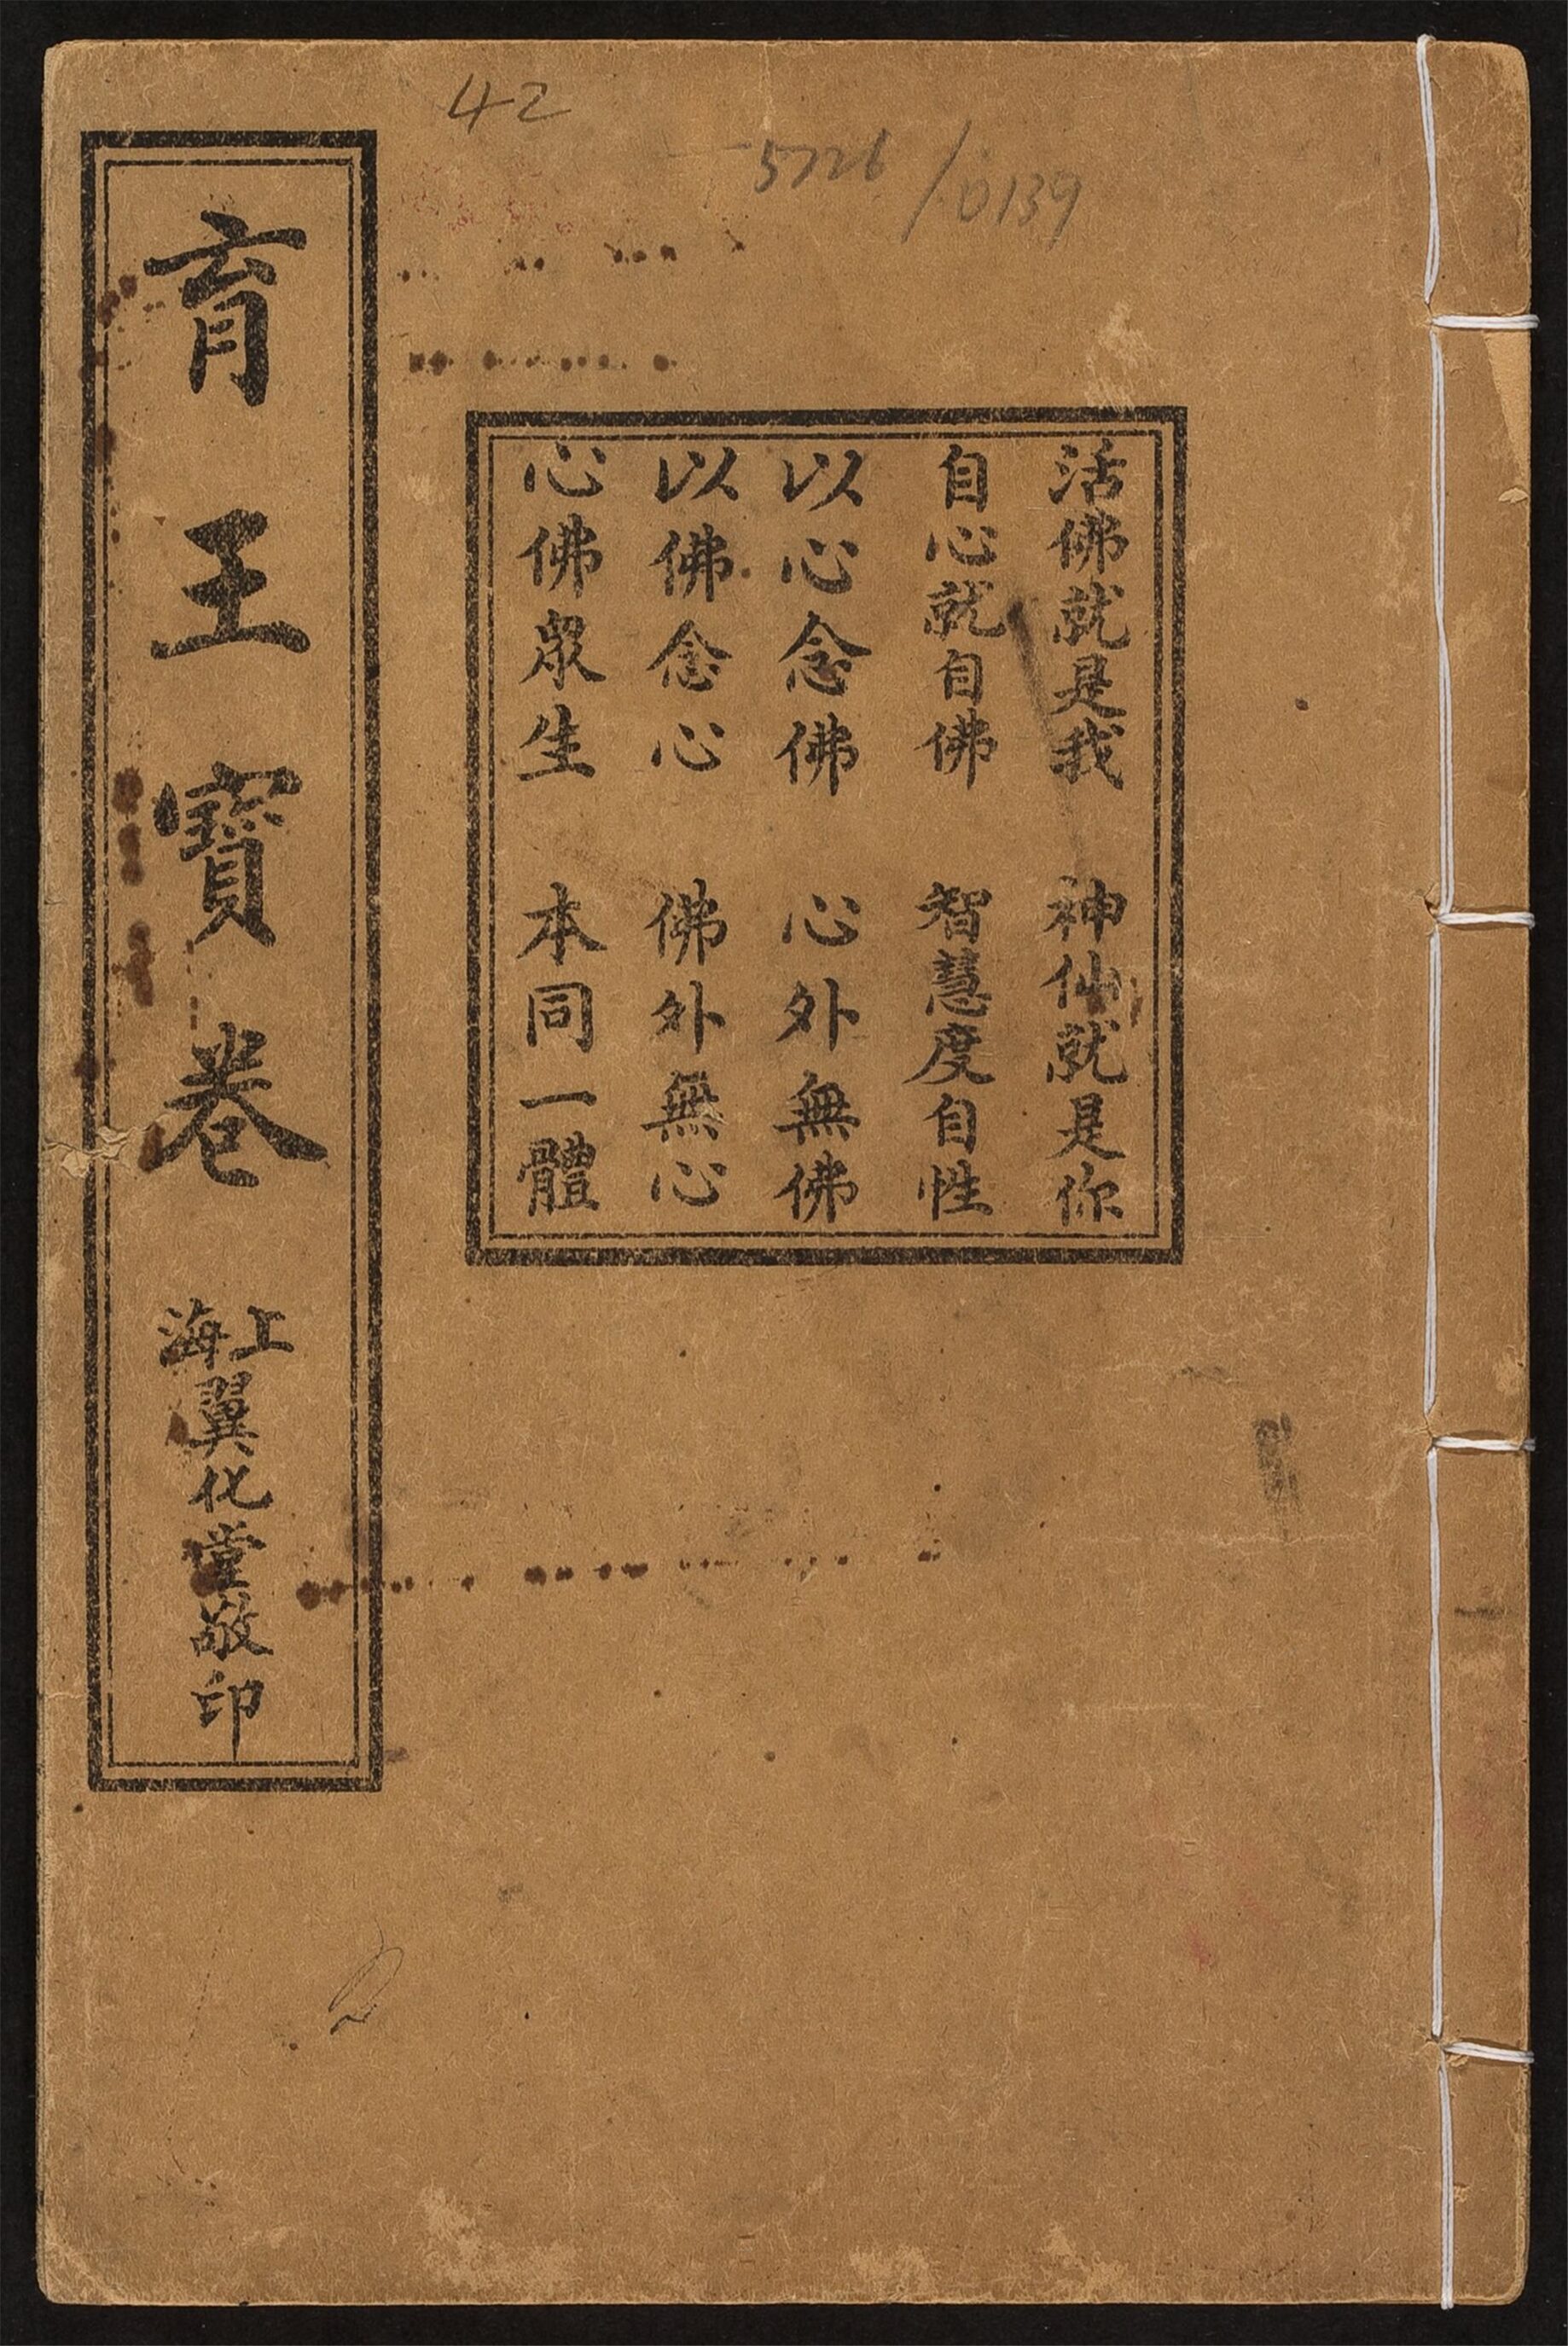 42
5726/0139
活佛就是我 神仙就是你
自心就自佛 智慧度自性
以心念佛 心外無佛
以佛念心 佛外無心
心佛眾生 本同一體
育王寶卷
上海翼化堂敬印